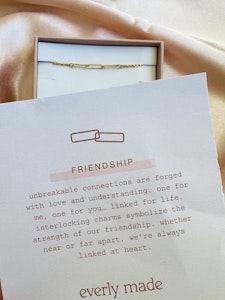 FRIENDSHIP
unbreakable connections are forged
with love and understanding… one for
me, one for you… linked for life.
interlocking charms symbolize the
strength of our friendship. whether
near or far apart, we're always
linked at heart.
everly made